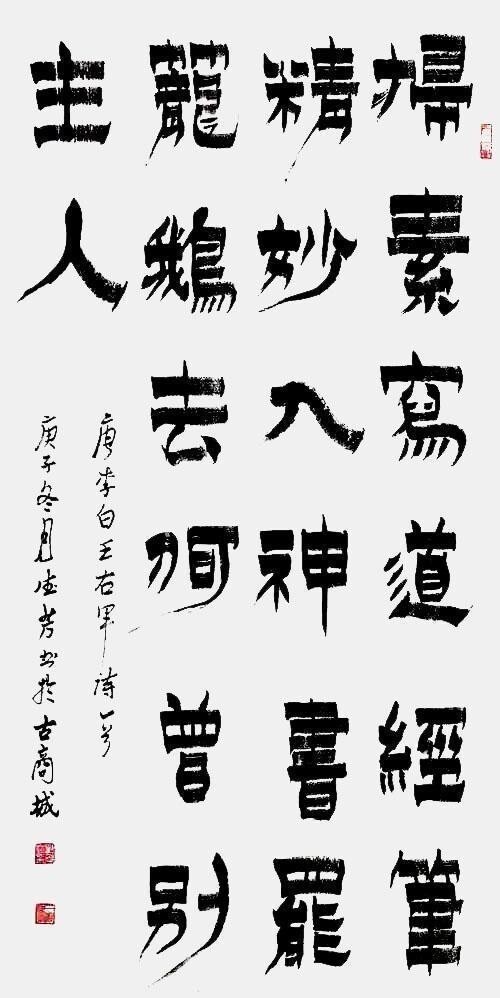 掃素寫道經筆
精妙入神書罷
籠鵝去何曾別
主人
唐李白王右軍詩一首
庚子冬月芳书於古商城